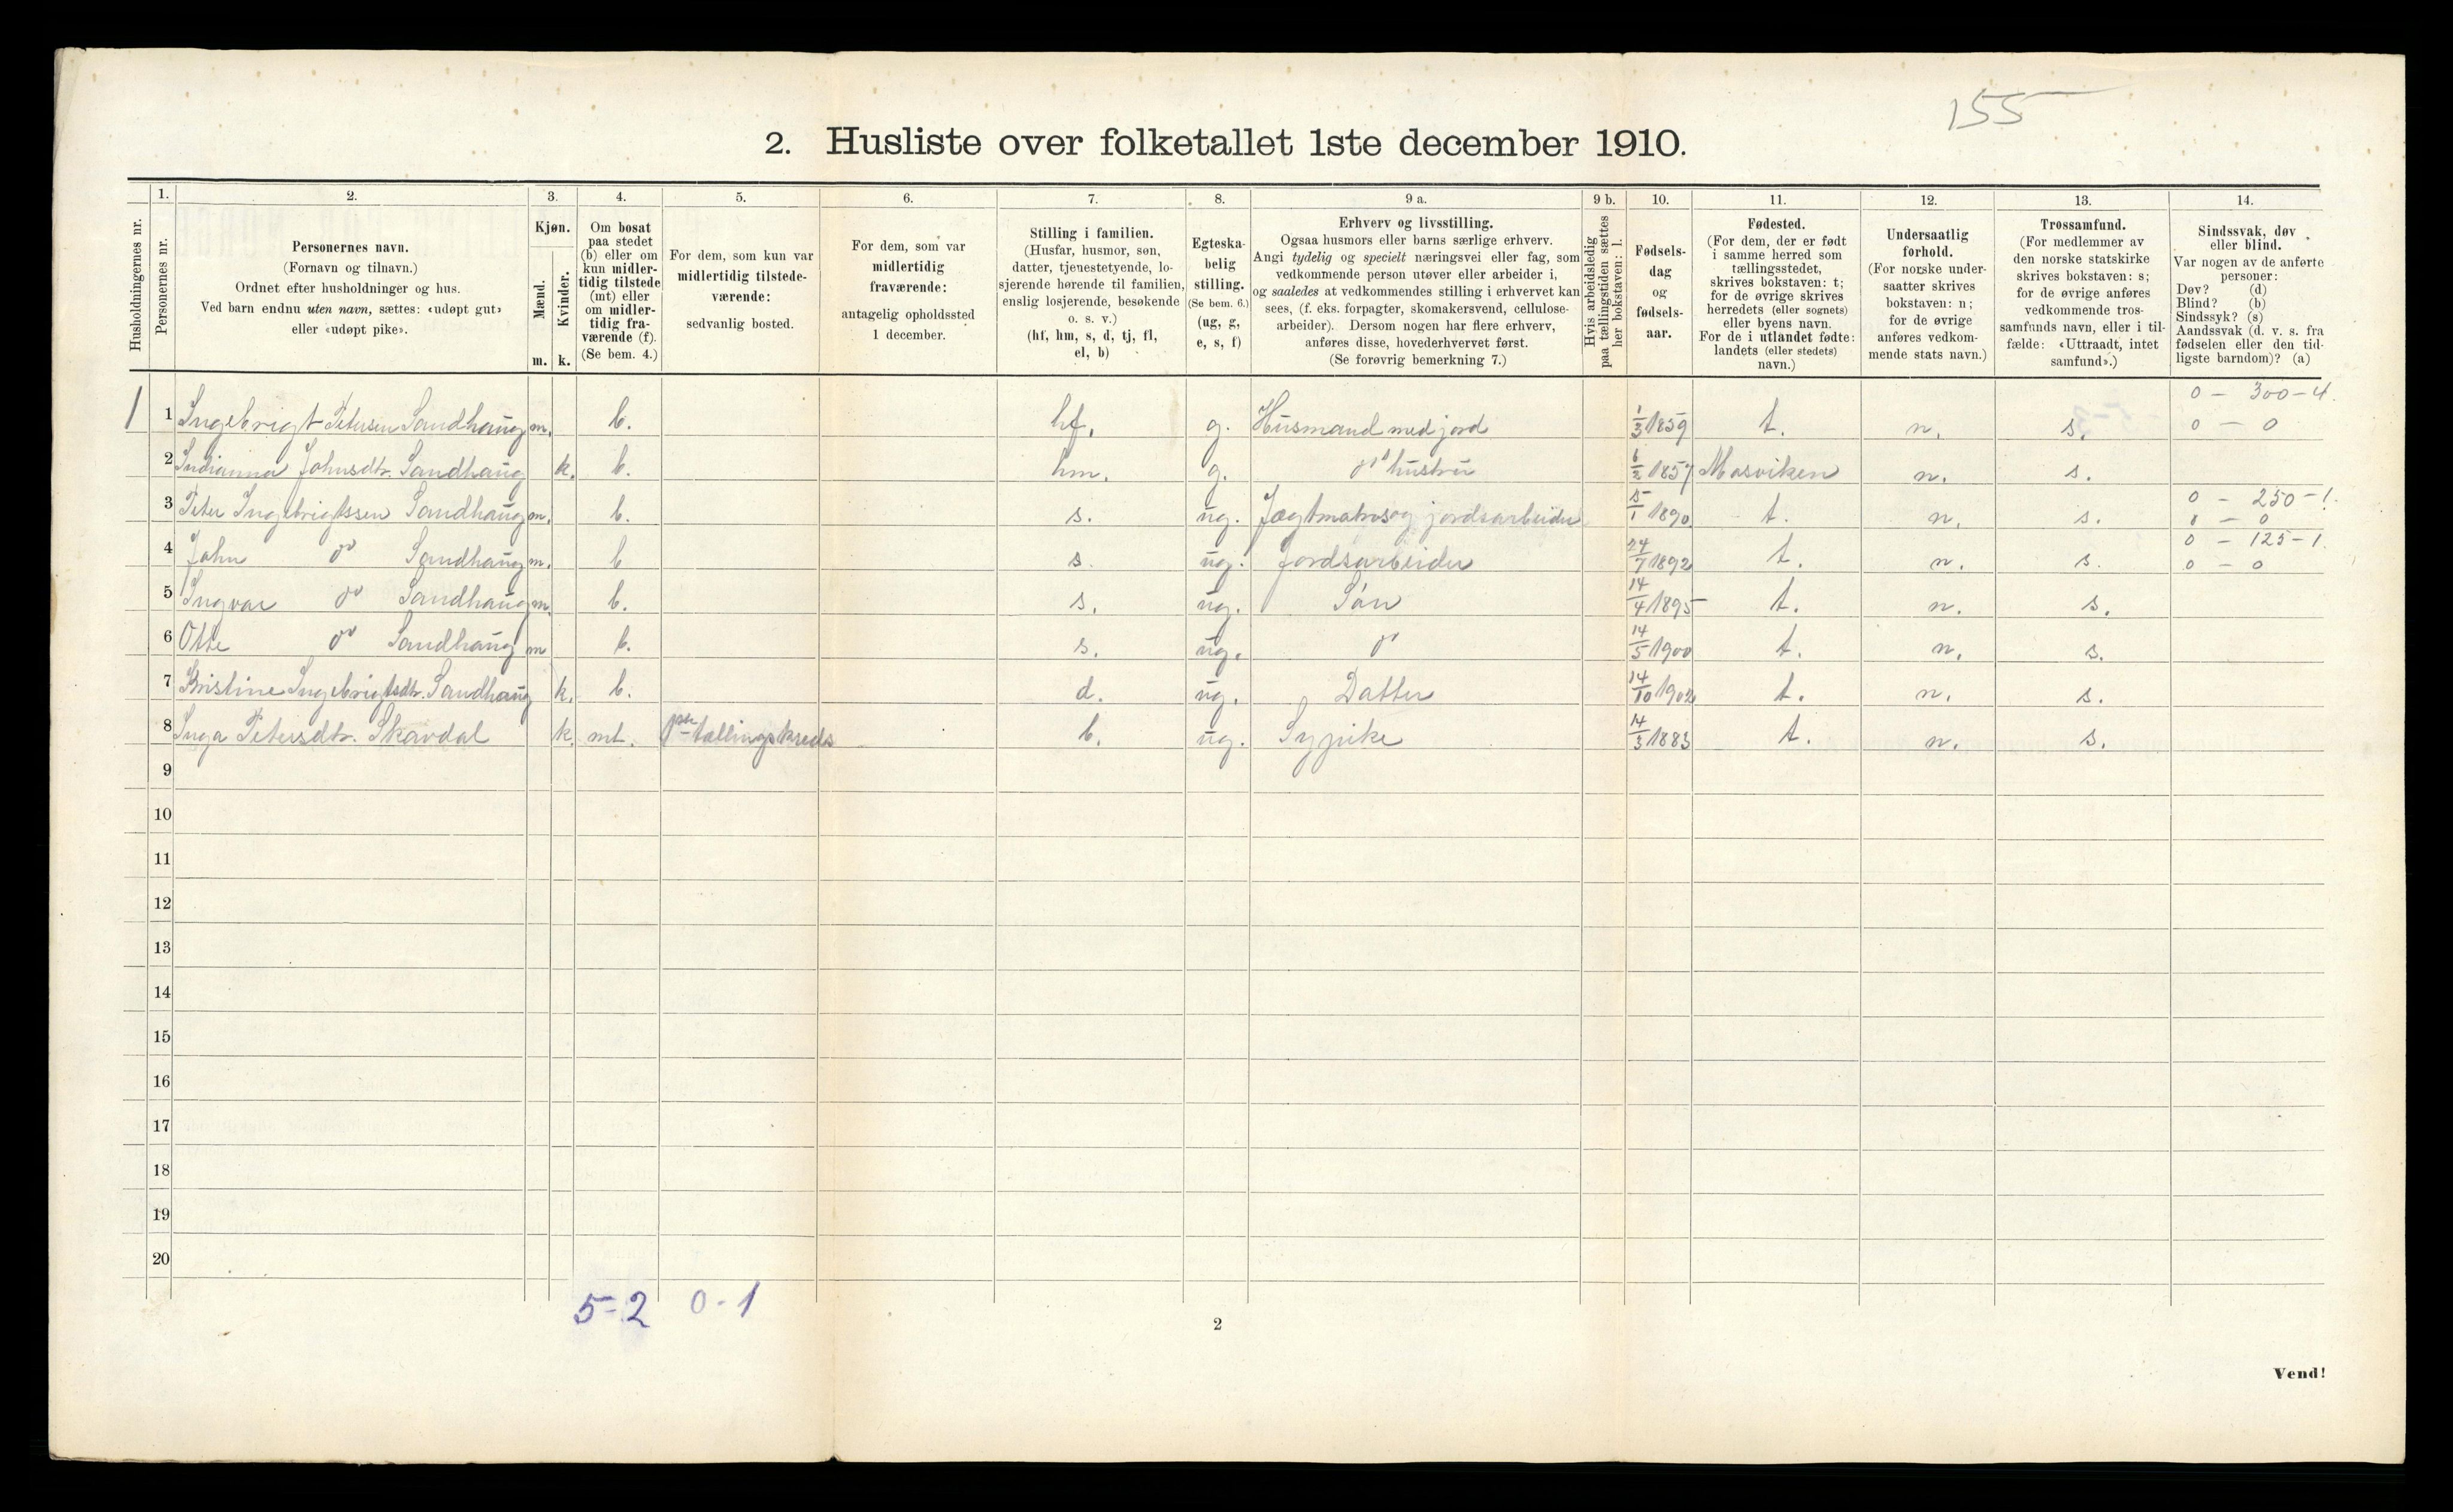 155
2. Husliste over folketallet 1ste december 1910.
Husholdningernes nr.
1.
Personernes nr.
2.
Personernes navn.
(Fornavn og tilnavn.)
Ordnet efter husholdninger og hus.
Ved barn endnu uten navn, sættes: «udøpt gut»
eller «udøpt pike».
3.
Kjøn.
Mænd.
Kvinder.
m. k.
4.
Om bosat
paa stedet
(b) eller om
kun midler-
tidig tilstede
(mt) eller
om midler-
tidig fra-
værende (f).
(Se bem. 4.)
5.
For dem, som kun var
midlertidig tilstede-
værende:
sedvanlig bosted.
6.
For dem, som var
midlertidig
fraværende:
antagelig opholdssted
1 december.
7.
Stilling i familien.
(Husfar, husmor, søn,
datter, tjenestetyende, lo-
sjerende hørende til familien,
enslig losjerende, besøkende
o. s. v.)
(hf, hm, s, d, tj, fl,
el, b)
8.
Egteska-
belig
stilling.
(Se bem. 6.)
(ug, g,
e, s, f)
9 a.
Erhverv og livsstilling.
Ogsaa husmors eller barns særlige erhverv.
Angi tydelig og specielt næringsvei eller fag, som
vedkommende person utøver eller arbeider i,
og saaledes at vedkommendes stilling i erhvervet kan
sees, (f. eks. forpagter, skomakersvend, cellulose-
arbeider). Dersom nogen har flere erhverv,
anføres disse, hovederhvervet først.
(Se forøvrig bemerkning 7.)
9 b.
Hvis arbeidsledig
paa tællingstiden sættes
her bokstaven: l.
10.
Fødsels-
dag
og
fødsels-
aar.
11.
Fødested.
(For dem, der er født
i samme herred som
tællingsstedet,
skrives bokstaven: t;
for de øvrige skrives
herredets (eller sognets)
eller byens navn.
For de i utlandet fødte:
landets (eller stedets)
navn.)
12.
Undersaatlig
forhold.
(For norske under-
saatter skrives
bokstaven: n;
for de øvrige
anføres vedkom-
mende stats navn.)
13.
Trossamfund.
(For medlemmer av
den norske statskirke
skrives bokstaven: s;
for de øvrige anføres
vedkommende tros-
samfunds navn, eller i til-
fælde: «Uttraadt, intet
samfund».)
14.
Sindssvak, døv
eller blind.
Var nogen av de anførte
personer:
Døv? (d)
Blind? (b)
Sindssyk? (s)
Aandssvak (d. v. s. fra
fødselen eller den tid-
ligste barndom)? (a)
0 - 300-4.
1 1 Ingebrigt Petersen Sandhaug m. b. hf. g. Husmand med jord 1/3 1859 t. n. s. 0 - 0
2 Indianna Johnsdtr. Sandhaug k. b. hm. g. do hustru 6/2 1857 Mosviken n. s.
0 - 250-1.
3 Peter Ingebrigtssen Sandhaug m. b. s. ug. Jægtmatros og jordsarbeider 5/1 1890 t. n. s. 0 - 0
0 - 125-1.
4 John do Sandhaug m. b s. ug. Jordsarbeider 24/7 1892 t. n. s. 0 - 0
5 Ingvar do Sandhaug m. b. s. ug. Søn 14/4 1895 t. n. s.
6 Otte do Sandhaug m b. s. ug. do 14/5 1900 t. n. s.
7 Kristine Ingebrigtsdtr. Sandhaug k. b. d. ug. Datter 14/10 1902 t. n. s.
8 Inga Petersdtr. Skavdal k. mt. tællingskreds b. ug. Sypike 14/3 1883 t. n. s.
9
10
11
12
13
14
15
16
17
18
19
20
5-2 0-1
2
Vend!